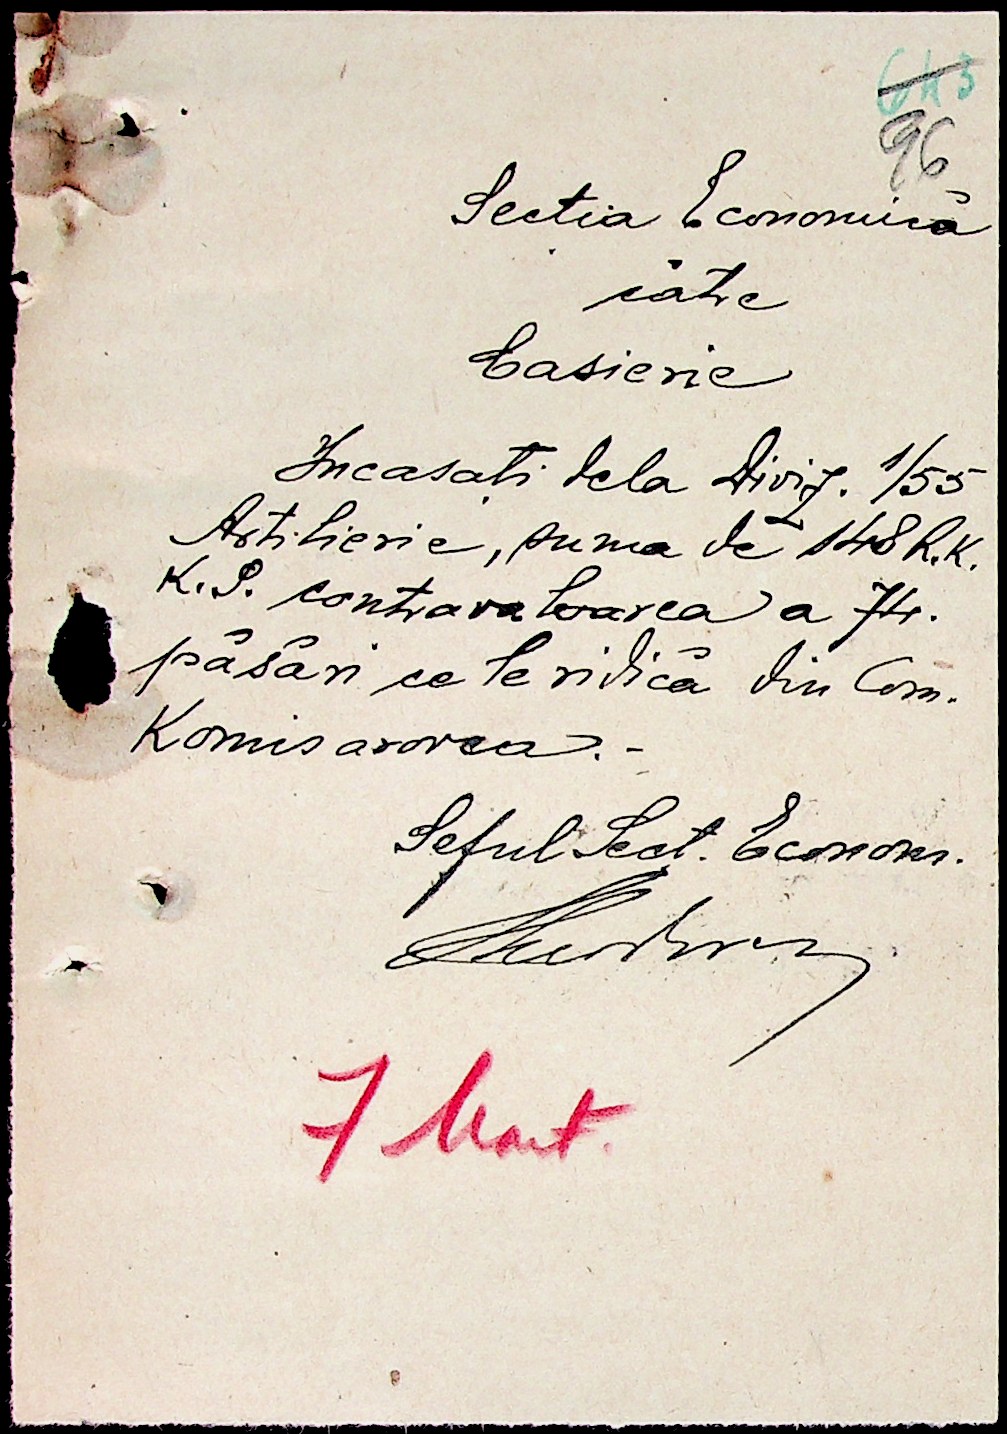 643
96
Sectia Economică
cătrе
Casierie
Incasați dela Diviz. 1/55
Artilierie, suma de 148 R.K.
K.S. contravaloarea a 74.
păsări ce le ridică din Com.
Komisarovca.-
Seful Sect. Econom.
7 Mart.